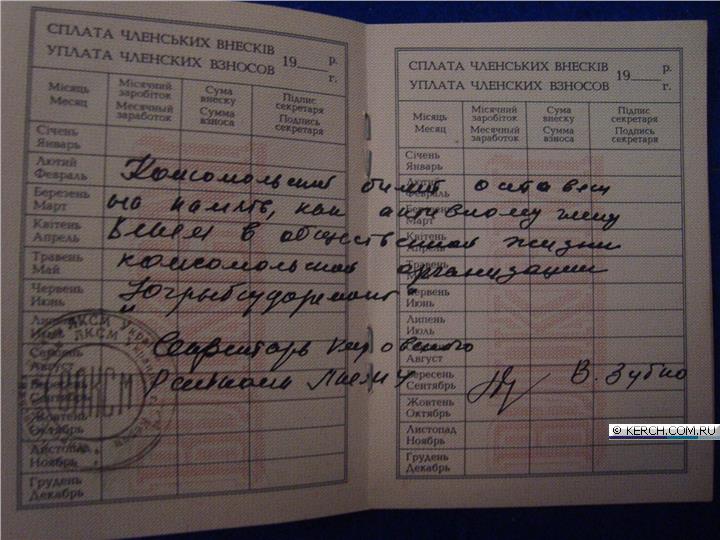 СПЛАТА ЧЛЕНСЬКИХ ВНЕСКІВ 19 р.
УПЛАТА ЧЛЕНСКИХ ВЗНОСОВ г.
Місяць Місячний заробіток Сума внеску Підпис секретаря
Месяц Месячный заработок Сумма взноса Подпись секретаря
Січень
Январь
Лютий
Февраль
Березень
Март
Квітень
Апрель
Травень
Май
Червень
Июнь
Липень
Июль
Серпень
Август
Вересень
Сентябрь
Жовтень
Октябрь
Листопад
Ноябрь
Грудень
Декабрь
СПЛАТА ЧЛЕНСЬКИХ ВНЕСКІВ 19 р.
УПЛАТА ЧЛЕНСКИХ ВЗНОСОВ г.
Місяць Місячний заробіток Сума внеску Підпис секретаря
Месяц Месячный заработок Сумма взноса Подпись секретаря
Січень
Январь
Лютий
Февраль
Березень
Март
Квітень
Апрель
Травень
Май
Червень
Июнь
Липень
Июль
Серпень
Август
Вересень
Сентябрь
Жовтень
Октябрь
Листопад
Ноябрь
Грудень
Декабрь
Комсомольский билет оставлен
на память, как активному члену
ВЛКСМ в общественной жизни
комсомольской организации
"Югрыбсудоремонт"
Секретарь Кировского
Райкома ЛКСМУ В. Зубко
ЛКСМ
© KERCH.COM.RU